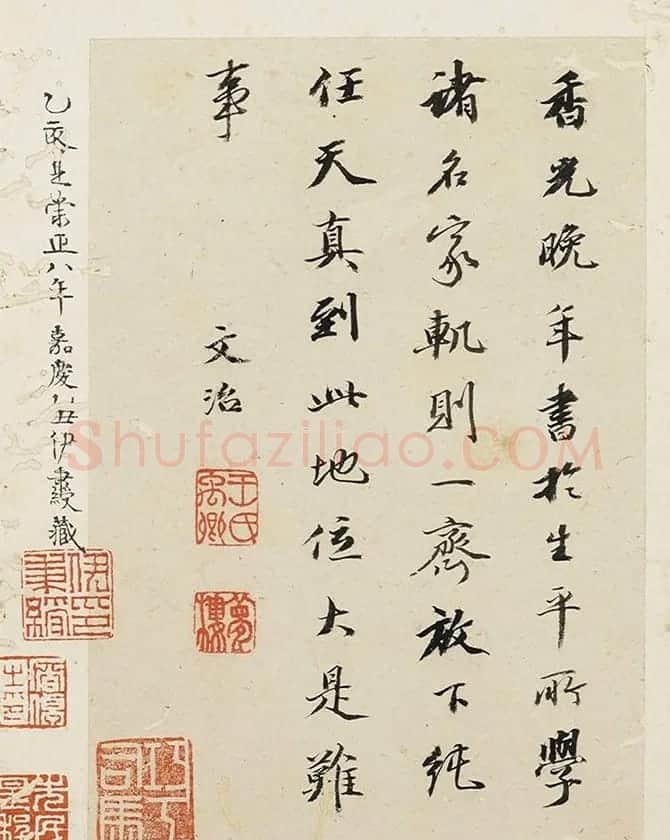 香光晚年書於生平所學
諸名家軌則一齊放下純
任天真到此地位大是難
事
文治
王氏禹卿
夢樓
乙亥是崇正八年嘉慶乙丑伊秉綬藏
伊印秉綬
Shufaziliao.COM